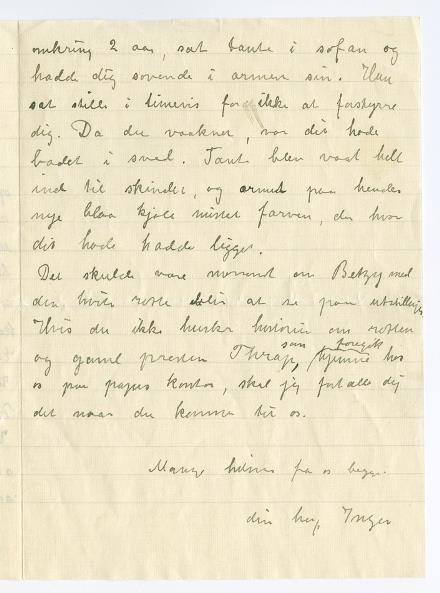 omkring 2 aar, sat tante i sofan og
hadde dig sovende i armen sin. Hun
sat stille i timevis for ikke at forstyrre
dig. Da du vaaknet, var dit hode
badet i sved. Tante blev vaat helt
ind til skindet, og ermet paa hendes
nye blaa kjole mistet farven, der hvor
dit hode hadde ligget.
Det skulde vore morsomt om Betzy med
den hvite rotte blir at se paa utstillingen
Hvis du ikke husker historien om rotten
og gamle presten Thrap, som foregik hos
os paa papas kontor, skal jeg fortælle dig
det naar du kommer til os.
Mange hilsner fra os begge.
din Inger